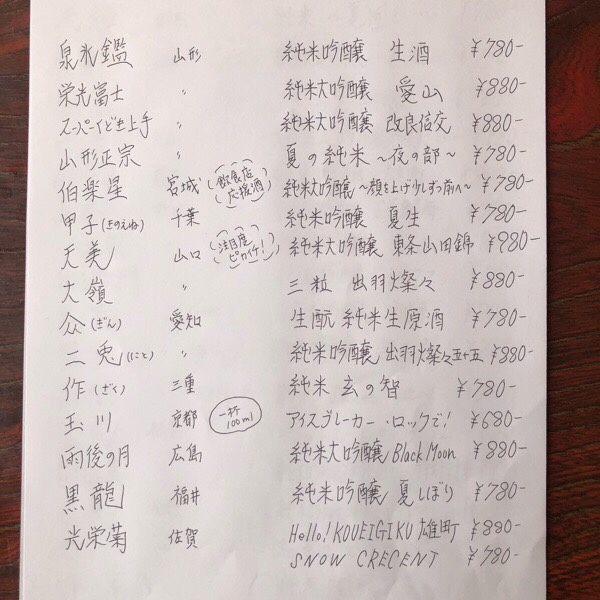 泉氷鑑 山形 純米吟醸 生酒 ¥780-
栄光富士 〃 純米大吟醸 愛山 ¥880-
スーパーくどき上手 〃 純米大吟醸 改良信交 ¥880-
山形正宗 〃 夏の純米 ~夜の部~ ¥780-
伯楽星 宮城 (飲食店応援酒) 純米大吟醸 ~顔を上げ少しずつ前へ~ ¥780-
甲子(きのえね) 千葉 純米吟醸 夏生 ¥780-
天美 山口 (注目度ピカイチ!) 純米大吟醸 東条山田錦 ¥980-
大嶺 〃 三粒 出羽燦々 ¥880-
众(ぎん) 愛知 生酛 純米生原酒 ¥780-
二兎(にと) 〃 純米吟醸 出羽燦々五十五 ¥880-
作(ざく) 三重 純米 玄の智 ¥780-
玉川 京都 一杯100ml アイスブレーカー・ロックで! ¥680-
雨後の月 広島 純米大吟醸 Black Moon ¥880-
黒龍 福井 純米吟醸 夏しぼり ¥780-
光栄菊 佐賀 Hello! KOUEIGIKU 雄町 ¥880-
SNOW CRECENT ¥780-